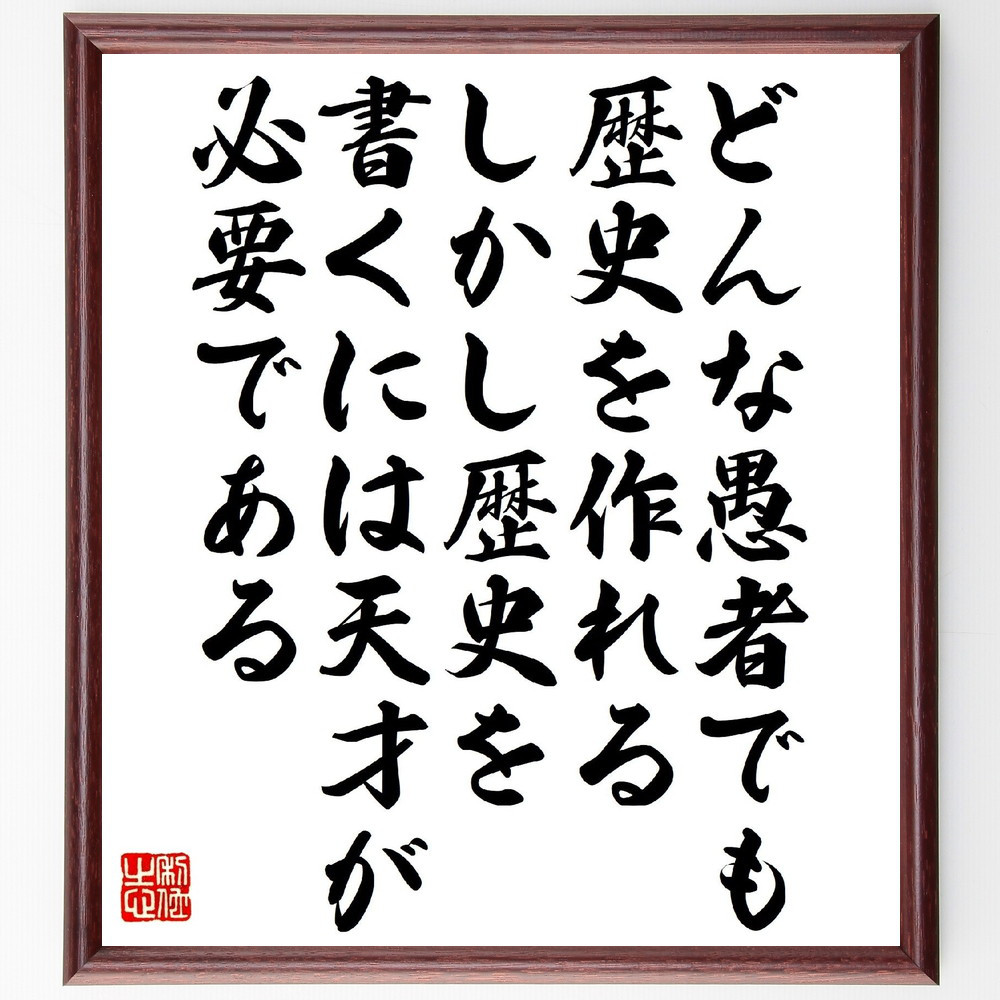 どんな愚者でも
歴史を作れる
しかし歴史を
書くには天才が
必要である